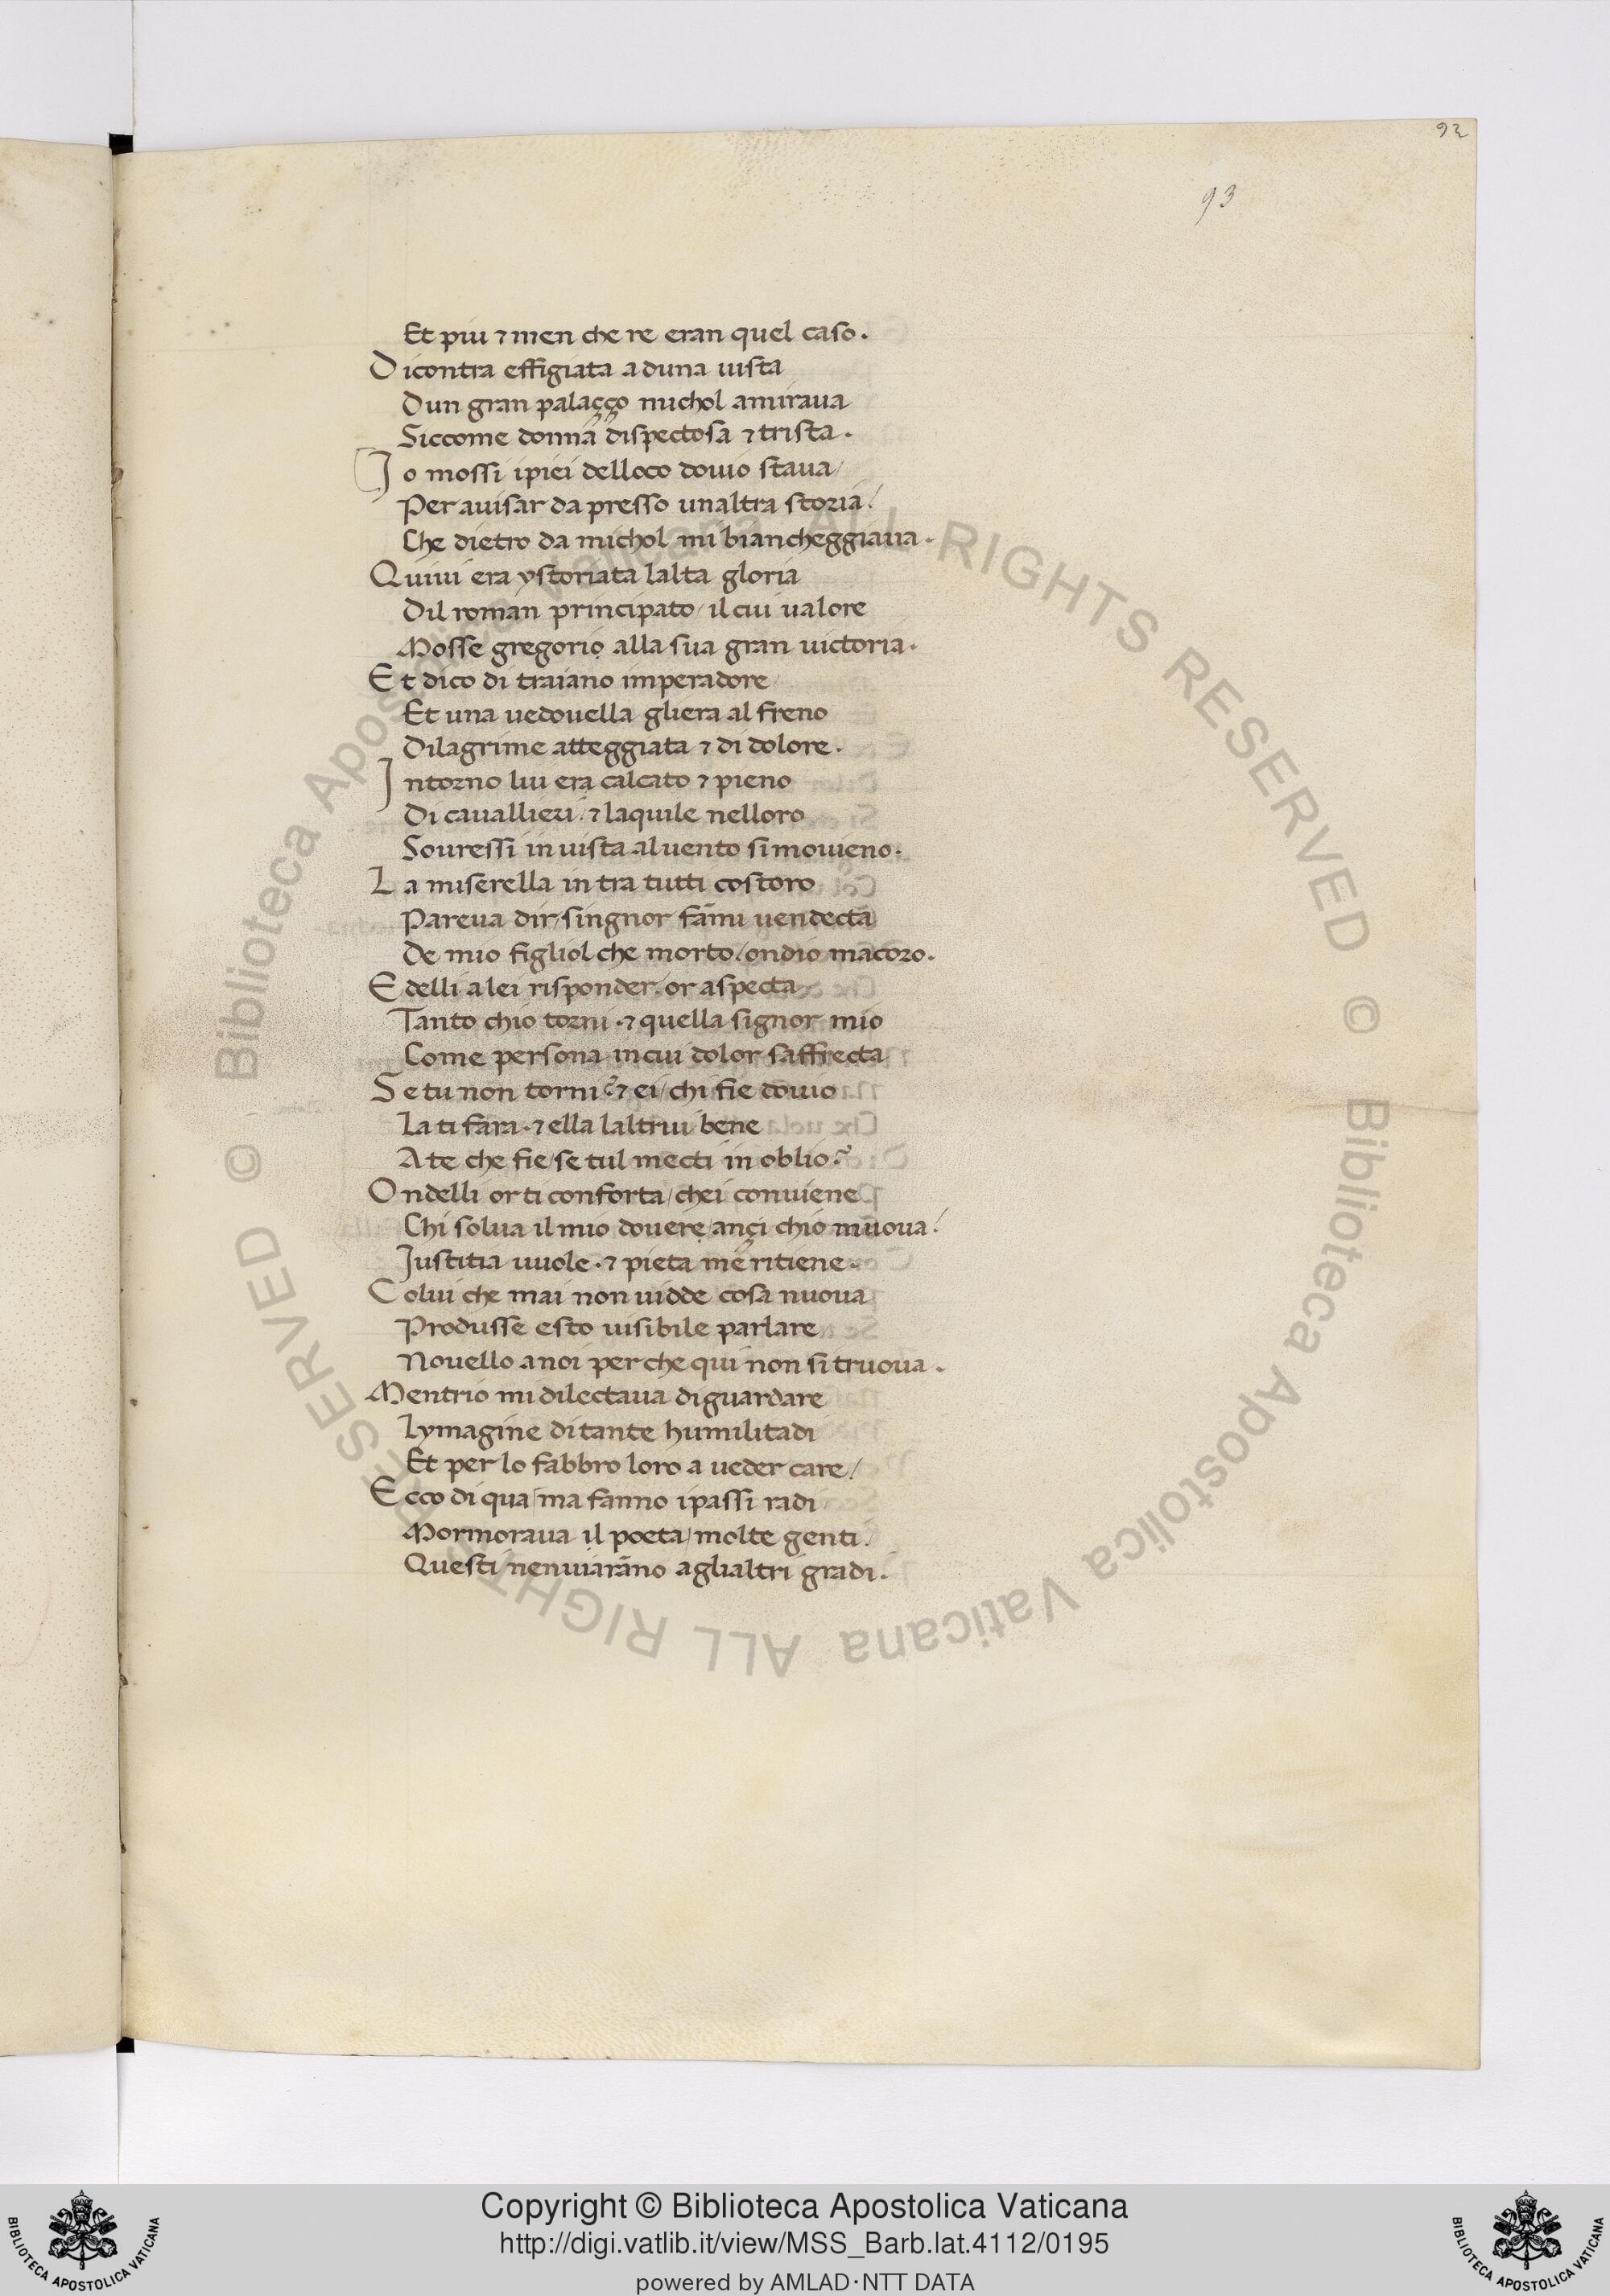 92
93
Et piu ⁊ men che re eran quel caso.
Dicontra effigiata aduna uista
Dun gran palaçço michol amiraua
Siccome donna dispectosa ⁊ trista.
Io mossi ipiei delloco douio staua/
Per auisar da presso unaltra storia/
Che dietro da michol mi biancheggiaua.
Quiui era ystoriata lalta gloria
Dil roman principato/ il cui ualore
Mosse gregorio alla sua gran uictoria.
Et dico di traiano imperadore/
Et una uedouella gliera al freno
Dilagrime atteggiata ⁊ di dolore.
Intorno lui era calcato ⁊ pieno
Di cauallieri/ ⁊ laquile nelloro
Souressi in uista al uento si mouieno.
La miserella in tra tutti costoro
Pareua dir/ singnor fāmi uendecta
De mio figliol che morto/ ondio macoro.
Edelli a lei risponder/ or aspecta
Tanto chio torni · ⁊ quella signor mio
Come persona in cui dolor saffrecta
Se tu non torni? ⁊ ei/ chi fie douio
La ti fara · ⁊ ella laltrui bene
A te che fie/ se tul mecti in oblio?
Ondelli or ti conforta/ chei conuiene
Chi solua il mio douere/ ançi chio muoua/
Justitia uuole · ⁊ pieta me ritiene.
Colui che mai non uidde cosa nuoua
Produsse esto uisibile parlare
Nouello a noi perche qui non si truoua.
Mentrio mi dilectaua di guardare
Lymagine di tante humilitadi
Et per lo fabbro loro a ueder care/
Ecco di qua/ ma fanno ipassi radi
Mormoraua il poeta/ molte genti/
Questi nenuiarāno aglialtri gradi.
© Biblioteca Apostolica Vaticana ALL RIGHTS RESERVED © Biblioteca Apostolica Vaticana ALL RIGHTS RESERVED
Copyright © Biblioteca Apostolica Vaticana
http://digi.vatlib.it/view/MSS_Barb.lat.4112/0195
powered by AMLAD·NTT DATA
BIBLIOTECA APOSTOLICA VATICANA
BIBLIOTECA APOSTOLICA VATICANA